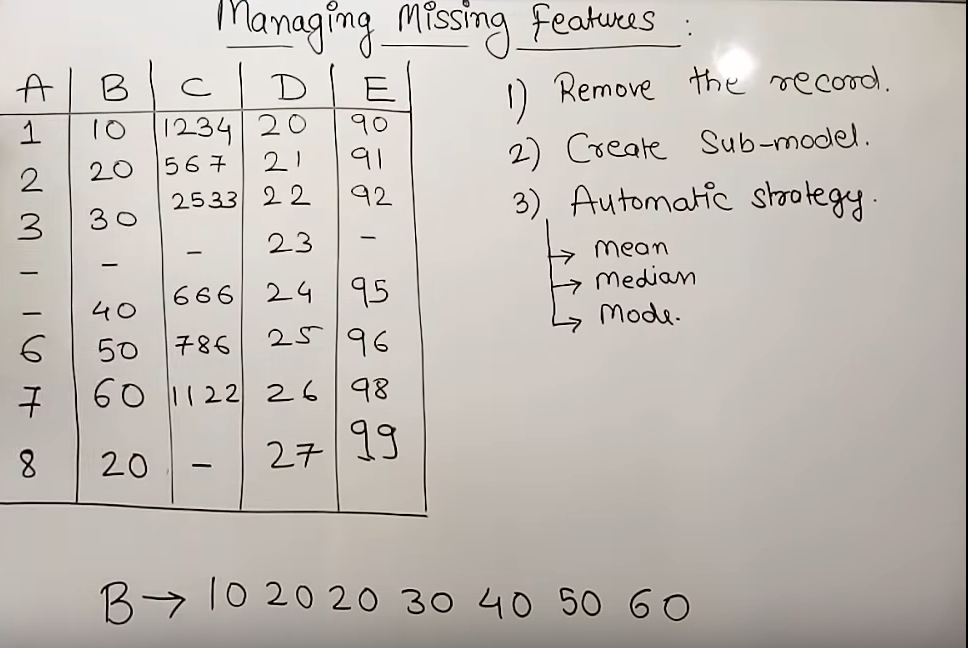 Managing Missing Features :
A B C D E
1 10 1234 20 90
2 20 567 21 91
3 30 2533 22 92
- - - 23 -
- 40 666 24 95
6 50 786 25 96
7 60 1122 26 98
8 20 - 27 99
1) Remove the record.
2) Create Sub-model.
3) Automatic strategy.
→ mean
→ median
→ mode.
B → 10 20 20 30 40 50 60